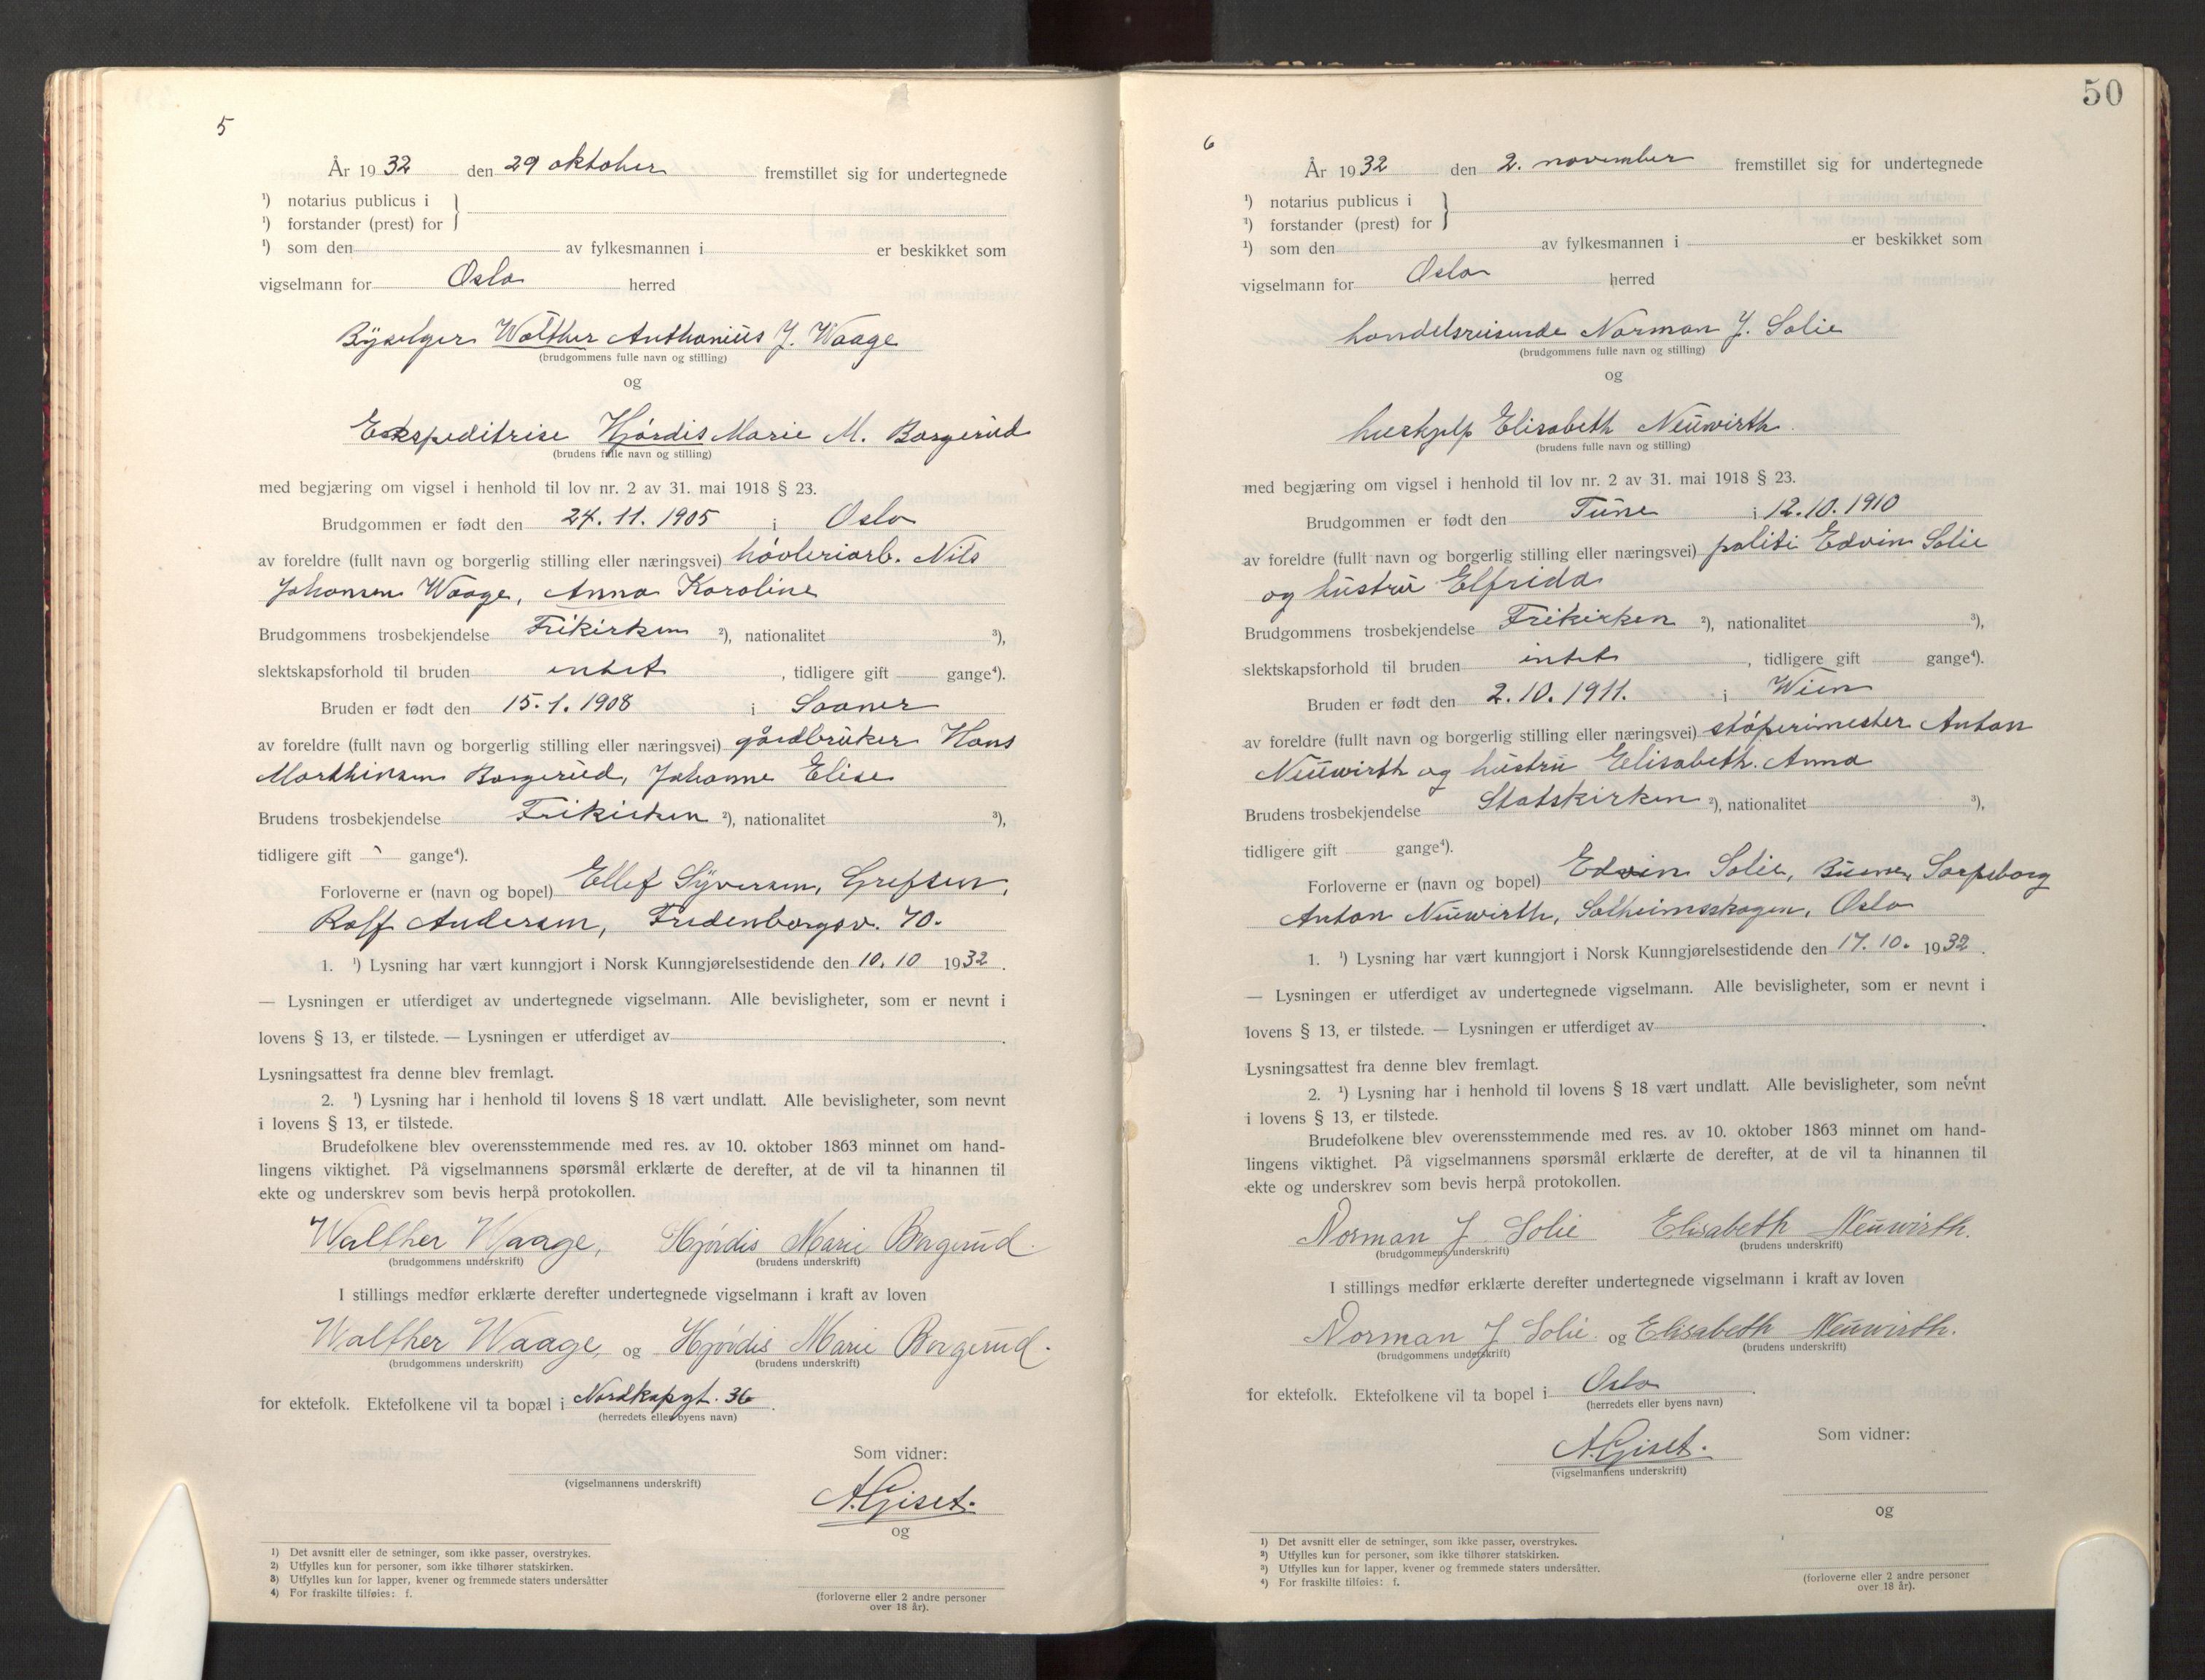 5
År 1932 den 29 oktober fremstillet sig for undertegnede
¹) notarius publicus i
¹) forstander (prest) for
¹) som den av fylkesmannen i er beskikket som
vigselmann for Oslo herred
Byselger Walther Anthonius J. Waage
(brudgommens fulle navn og stilling)
og
Ekspeditrise Hjørdis Marie M. Borgerud
(brudens fulle navn og stilling)
med begjæring om vigsel i henhold til lov nr. 2 av 31. mai 1918 § 23.
Brudgommen er født den 24. 11. 1905 i Oslo
av foreldre (fullt navn og borgerlig stilling eller næringsvei) høvleriarb. Nils
Johansen Waage, Anna Karoline
Brudgommens trosbekjendelse Frikirken ²), nationalitet ³),
slektskapsforhold til bruden intet , tidligere gift gange⁴).
Bruden er født den 15. 1. 1908 i Saaner
av foreldre (fullt navn og borgerlig stilling eller næringsvei) gårdbruker Hans
Marthinsen Borgerud, Johanne Elise
Brudens trosbekjendelse Frikirken ²), nationalitet ³),
tidligere gift gange⁴).
Forloverne er (navn og bopel) Ellef Syversen, Grefsen,
Rolf Andersen, Fredenborgsv. 70.
1. ¹) Lysning har vært kunngjort i Norsk Kunngjørelsestidende den 10. 10 1932.
— Lysningen er utferdiget av undertegnede vigselmann. Alle bevisligheter, som er nevnt i
lovens § 13, er tilstede. — Lysningen er utferdiget av .
Lysningsattest fra denne blev fremlagt.
2. ¹) Lysning har i henhold til lovens § 18 vært undlatt. Alle bevisligheter, som nevnt
i lovens § 13, er tilstede.
Brudefolkene blev overensstemmende med res. av 10. oktober 1863 minnet om hand-
lingens viktighet. På vigselmannens spørsmål erklærte de derefter, at de vil ta hinannen til
ekte og underskrev som bevis herpå protokollen.
Walther Waage, Hjørdis Marie Borgerud.
(brudgommens underskrift) (brudens underskrift)
I stillings medfør erklærte derefter undertegnede vigselmann i kraft av loven
Walther Waage, og Hjørdis Marie Borgerud.
(brudgommens underskrift) (brudens underskrift)
for ektefolk. Ektefolkene vil ta bopæl i Nordkapgt. 36 .
(herredets eller byens navn)
Som vidner:
(vigselmannens underskrift)
A. Giset.
og
¹) Det avsnitt eller de setninger, som ikke passer, overstrykes.
²) Utfylles kun for personer, som ikke tilhører statskirken.
³) Utfylles kun for lapper, kvener og fremmede staters undersåtter
⁴) For fraskilte tilføies: f.
(forloverne eller 2 andre personer
over 18 år).
50
6
År 1932 den 2. november fremstillet sig for undertegnede
¹) notarius publicus i
¹) forstander (prest) for
¹) som den av fylkesmannen i er beskikket som
vigselmann for Oslo herred
handelsreisende Norman J. Solie
(brudgommens fulle navn og stilling)
og
huskjelp Elisabeth Neuwirth.
(brudens fulle navn og stilling)
med begjæring om vigsel i henhold til lov nr. 2 av 31. mai 1918 § 23.
Brudgommen er født den Tune i 12.10.1910
av foreldre (fullt navn og borgerlig stilling eller næringsvei) politi Edvin Solie
og hustru Elfrida
Brudgommens trosbekjendelse Frikirken ²), nationalitet ³),
slektskapsforhold til bruden intet , tidligere gift gange⁴).
Bruden er født den 2. 10. 1911. i Wien
av foreldre (fullt navn og borgerlig stilling eller næringsvei) støperimester Anton
Neuwirth og hustru Elisabeth Anna
Brudens trosbekjendelse Statskirken ²), nationalitet ³),
tidligere gift gange⁴).
Forloverne er (navn og bopel) Edvin Solie, Sarpsborg
Anton Neuwirth, Solheimsskogen, Oslo
1. ¹) Lysning har vært kunngjort i Norsk Kunngjørelsestidende den 17. 10. 1932.
— Lysningen er utferdiget av undertegnede vigselmann. Alle bevisligheter, som er nevnt i
lovens § 13, er tilstede. — Lysningen er utferdiget av .
Lysningsattest fra denne blev fremlagt.
2. ¹) Lysning har i henhold til lovens § 18 vært undlatt. Alle bevisligheter, som nevnt
i lovens § 13, er tilstede.
Brudefolkene blev overensstemmende med res. av 10. oktober 1863 minnet om hand-
lingens viktighet. På vigselmannens spørsmål erklærte de derefter, at de vil ta hinannen til
ekte og underskrev som bevis herpå protokollen.
Norman J Solie Elisabeth Neuwirth.
(brudgommens underskrift) (brudens underskrift)
I stillings medfør erklærte derefter undertegnede vigselmann i kraft av loven
Norman J Solie og Elisabeth Neuwirth.
(brudgommens underskrift) (brudens underskrift)
for ektefolk. Ektefolkene vil ta bopel i Oslo .
(herredets eller byens navn)
Som vidner:
A. Giset.
(vigselmannens underskrift)
og
¹) Det avsnitt eller de setninger, som ikke passer, overstrykes.
²) Utfylles kun for personer, som ikke tilhører statskirken.
³) Utfylles kun for lapper, kvener og fremmede staters undersåtter.
⁴) For fraskilte tilføies: f.
(forloverne eller 2 andre personer
over 18 år).